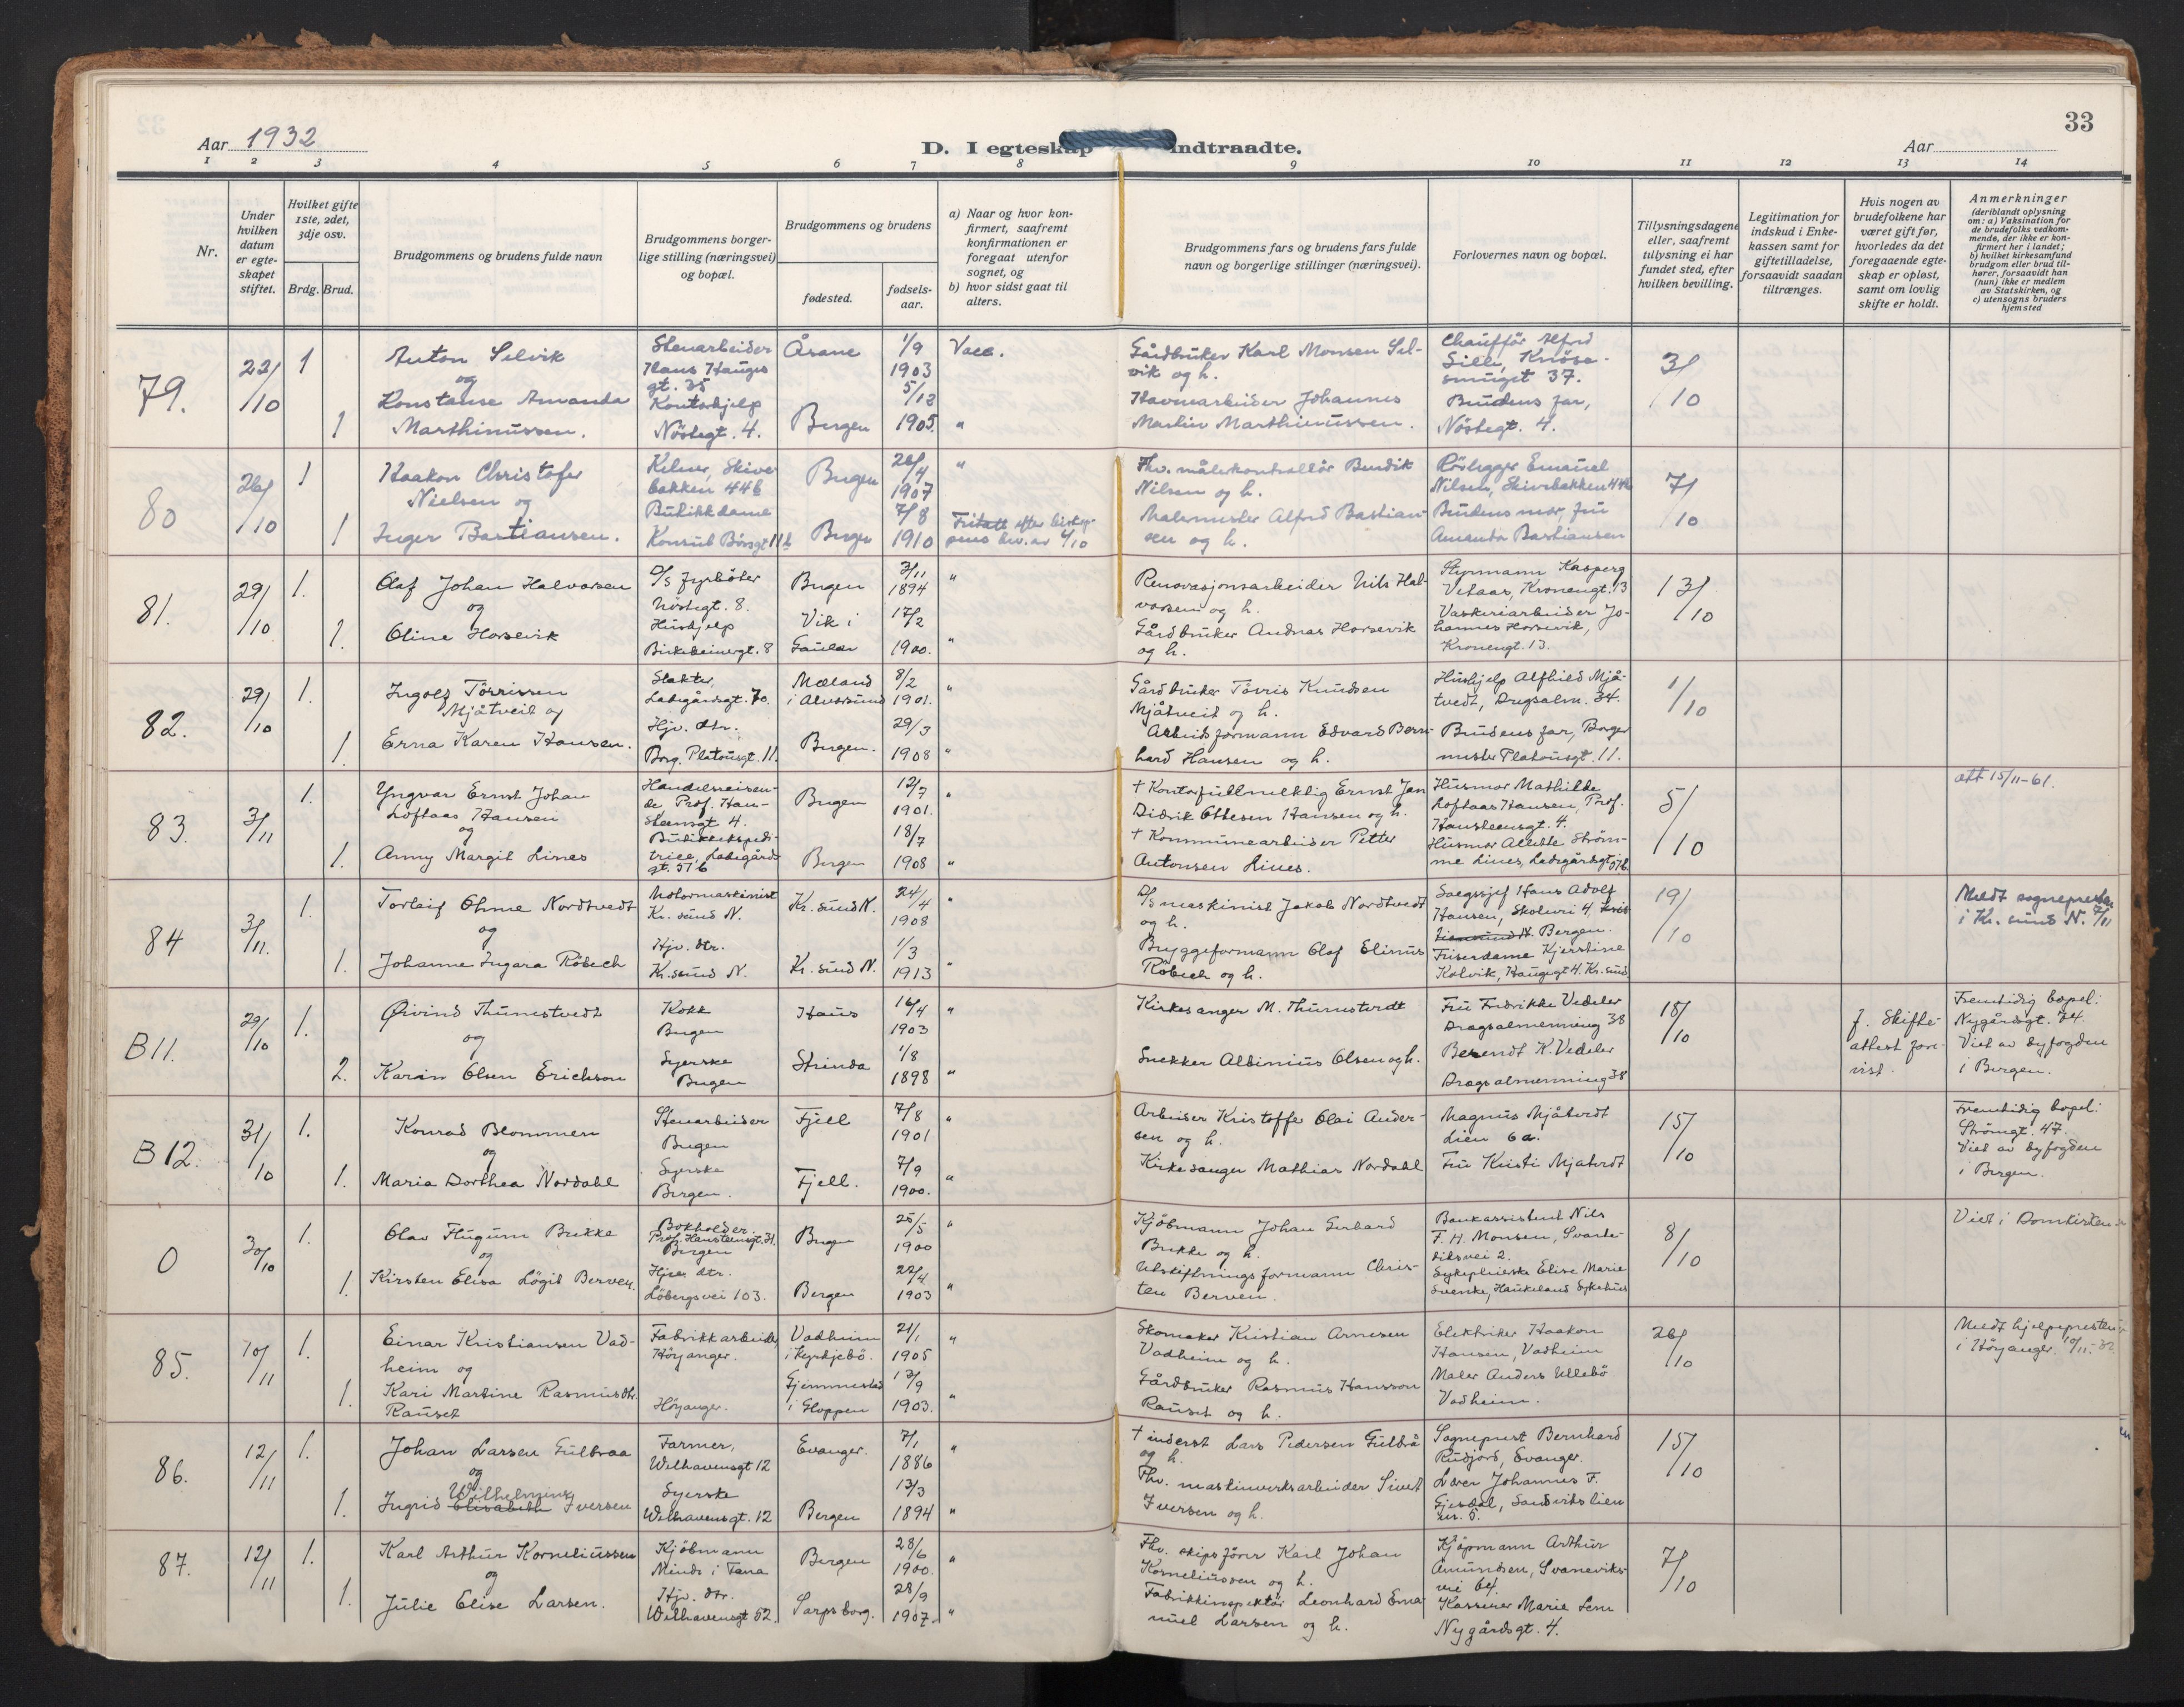 33
Aar 1932
D. I egteskap indtraadte.
Aar
1 2 3 4 5 6 7 8 9 10 11 12 13 14
Nr.
Under hvilken datum er egteskapet stiftet.
Hvilket gifte 1ste, 2det, 3dje osv.
Brdg. Brud.
Brudgommens og brudens fulde navn
Brudgommens borgerlige stilling (næringsvei) og bopæl.
Brudgommens og brudens
fødested.
fødselsaar.
a) Naar og hvor konfirmert, saafremt konfirmationen er foregaat utenfor sognet, og
b) hvor sidst gaat til alters.
Brudgommens fars og brudens fars fulde navn og borgerlige stillinger (næringsvei).
Forlovernes navn og bopæl.
Tillysningsdagene eller, saafremt tillysning ei har fundet sted, efter hvilken bevilling.
Legitimation for indskud i Enkekassen samt for giftetilladelse, forsaavidt saadan tiltrænges.
Hvis nogen av brudefolkene har været gift før, hvorledes da det foregaaende egteskap er opløst, samt om lovlig skifte er holdt.
Anmerkninger
(deriblandt oplysning om: a) Vaksination for de brudefolks vedkommende, der ikke er konfirmert her i landet;
b) hvilket kirkesamfund brudgom eller brud tilhører, forsaavidt han (hun) ikke er medlem av Statskirken, og
c) utensogns bruders hjemsted
79.
22/10
1
1
Anton Selvik
og
Konstanse Amanda
Marthinussen.
Stenarbeider
Hans Hauges
gt. 35
Kontorhjelp
Nöstegt. 4.
Åsane
Bergen
1/9
1903
5/12
1905.
Vacc.
"
Gårdbruker Karl Monsen Selvik og h.
Havnearbeider Johannes
Martin Marthinussen.
Chauffør Alfred
Sille, Knösesmuget 37.
Brudens far,
Nöstegt. 4.
3/10
80
26/10
1
1
Haakon Christofer
Nielsen og
Inger Bastiansen.
Kelner, Skivebakken 44b
Butikkdame
Konsul Börsgt 11b
Bergen
Bergen
26/4
1907
7/8
1910
"
Fritatt efter biskopens bev. av 4/10
Fhv. målerkontrollör Bendik
Nilsen og h.
Malermester Alfred Bastiansen og h.
Rörlegger Emanuel
Nilsen, Skivebakken 44b
Brudens mor, fru
Amanda Bastiansen
7/10
81.
29/10
1.
1.
Olaf Johan Halvorsen
og
Oline Horsevik
D/S fyrböter
Nöstegt. 8.
Hushjelp
Birkebeinergt. 8
Bergen
Vik i
Gaular
3/11
1894
17/2
1900.
"
"
Renovasjonsarbeider Nils Halvorsen og h.
Gårdbruker Andreas Horsevik
og h.
Styrmann Kasperg
Vetaas, Kronengt. 13
Vaskeriarbeider Johannes Horsevik,
Kronengt. 13.
13/10
82.
29/10
1.
1.
Ingolf Törrissen
Mjåtveit og
Erna Karen Hansen.
Slakter,
Ladegårdsgt. 70.
Hjv. dtr.
Borg. Platousgt. 11.
Mæland
i Alversund
Bergen.
8/2
1901.
29/3
1908
"
"
Gårdbruker Törris Knudsen
Mjåtveit og h.
Arbeidsformann Edvard Bernhard Hansen og h.
Hushjelp Alfhild Mjåtvedt, Dregsalm. 34.
Brudens far, Borgermester Platousgt. 11.
1/10
83.
3/11
1.
1.
Yngvar Ernst Johan
Loftaas Hansen
og
Anny Margit Lines
Handelsreisende Prof. Hansteensgt. 4.
Butikkekspeditrice, Ladegårdsgt. 57b
Bergen
Bergen
12/7
1901.
18/7
1908
"
"
+ Kontorfullmektig Ernst Jan
Didrik Ottesen Hansen og h.
+ Kommunearbeider Petter
Antonsen Lines.
Husmor Mathilde
Loftaas Hansen, Prof.
Hansteensgt. 4.
Husmor Alette Strömme Lines, Ladegårdsgt 57b.
5/10
att 15/11-61.
84
3/11.
1.
1.
Torleif Ohme Nordtvedt
og
Johanne Ingara Röbech
Motormaskinist
Kr. sund N.
Hjv. dtr.
Kr. sund N.
Kr. sund N.
Kr. sund N.
24/4
1908
1/3
1913
"
"
D/S maskinist Jakob Nordtvedt
og h.
Bryggeformann Olaf Elinus
Röbech og h.
Hans Adolf
Hansen, 4, Bergen.
Friserdame Kjerstine
Kolvik, Haugegt 4. Kr. sund
19/10
Meldt sognepresten
i Kr. sund N. 7/11
B 11.
29/10
1.
2.
Øivind Thunestvedt
og
Karin Olsen Erichson
Kokk
Bergen
Syerske
Bergen
Haus
Strinda
16/4
1903
1/8
1898
"
"
Kirkesanger M. Thunestvedt
Snekker Albinius Olsen og h.
Fru Fredrikke Vedeler
Dragsalmenning 38
Berendt K. Vedeler
Dragsalmenning 38
18/10
f. Skifteattest forevist.
Fremtidig bopel:
Nygårdsgt. 74.
Viet av byfogden
i Bergen.
B 12.
31/10
1.
1.
Konrad Blommen
og
Maria Dorthea Nordahl
Stenarbeider
Bergen
Syerske
Bergen.
Fjell
Fjell.
7/8
1901
7/9
1900.
"
"
Arbeider Kristoffer Olai Andersen og h.
Kirkesanger Mathias Nordahl
Magnus Mjåtvedt
Lien 6a.
Fru Kristi Mjatvedt
15/10
Fremtidig bopel:
Strömgt. 47.
Viet av byfogden
i Bergen.
0
30/10
1.
1.
Olav Flugum Brekke
og
Kirsten Elisa Lögit Berven.
Bokholder
Prof. Hansteensgt. 31.
Bergen
Hjv. dtr.
Löbergsvei 103.
Bergen
Bergen
25/5
1900
22/4
1903
"
"
Kjöbmann Johan Gerhard
Brekke og h.
Utskiftningsformann Christen Berven.
Bankassistent Nils
F. H. Monsen, Svartediksvei 2.
Sykepleierske Elise Marie
Svenke, Haukeland Sykehus
8/10
Viet i Domkirken
85.
10/11
1.
1.
Einar Kristiansen Vadheim og
Kari Martine Rasmusdtr.
Rauset
Fabrikkarbeider,
Höyanger.
Höyanger.
Vadheim
i Kyrkjebö.
Gjemmestad
i Gloppen
21/1
1905
17/9
1903.
"
"
Skomaker Kristian Arnesen
Vadheim og h.
Gårdbruker Rasmus Hansson
Rauset og h.
Elektriker Haakon
Hansen, Vadheim
Maler Anders Ullebö
Vadheim.
26/10
Meldt hjelpepresten
i Höyanger. 10/11-32
86.
12/11
1.
1.
Johan Larsen Gulbraa
og
Wilhelmine
Ingrid Elisabeth Iversen
Farmer,
Welhavensgt 12
Syerske
Welhavensgt. 12
Evanger.
Bergen
7/1
1886
13/3
1894
"
"
+ inderst Lars Pedersen Gulbrå
og h.
Fhv. maskinverksarbeider Sivert
Iversen og h.
Sogneprest Bernhard
Rudjord, Evanger.
Lærer Johannes F.
Gjesdal, Sandvikslien
nr. 5.
15/10
87.
12/11
1.
1.
Karl Arthur Korneliussen
og
Julie Elise Larsen.
Kjöbmann
Minde i Fana
Hjv. dtr.
Welhavensgt 52.
Bergen
Sarpsborg.
28/6
1900.
28/9
1907.
"
"
Fhv. skipsförer Karl Johan
Korneliussen og h.
Fabrikkinspektör Leonhard Emanuel Larsen og h.
Kjöpmann Arthur
Amundsen, Svaneviksvei 64.
Kasserer Marie Lem
Nygårdsgt. 4.
7/10